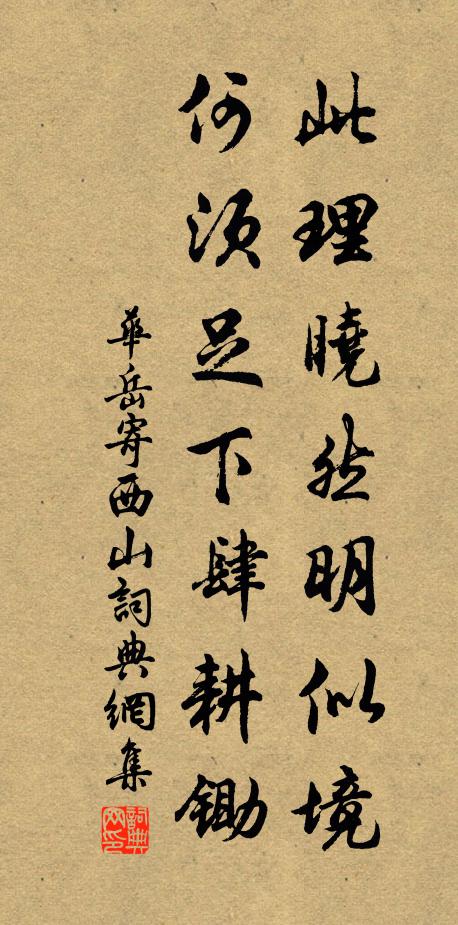 此理曉然明似境
何須足下肆耕鋤
華岳寄西山詞典網集
詞典网印